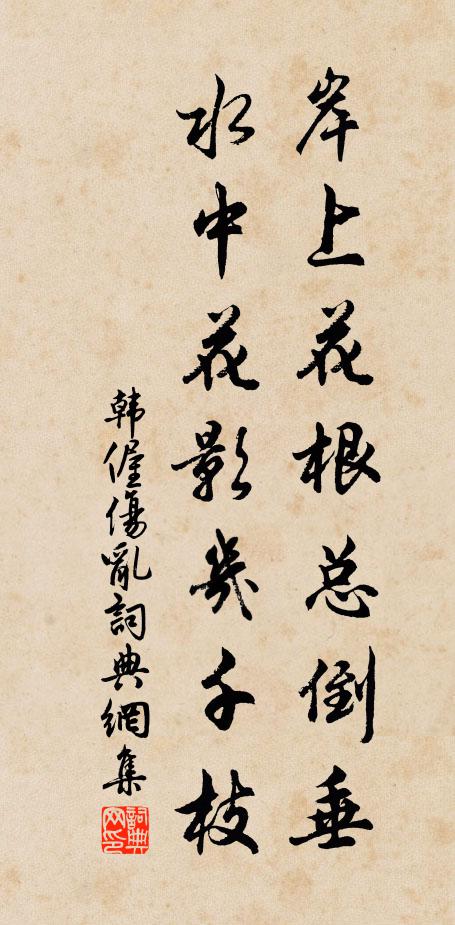 岸上花根总倒垂
水中花影几千枝
韩偓傷亂詞典網集
詞典网印